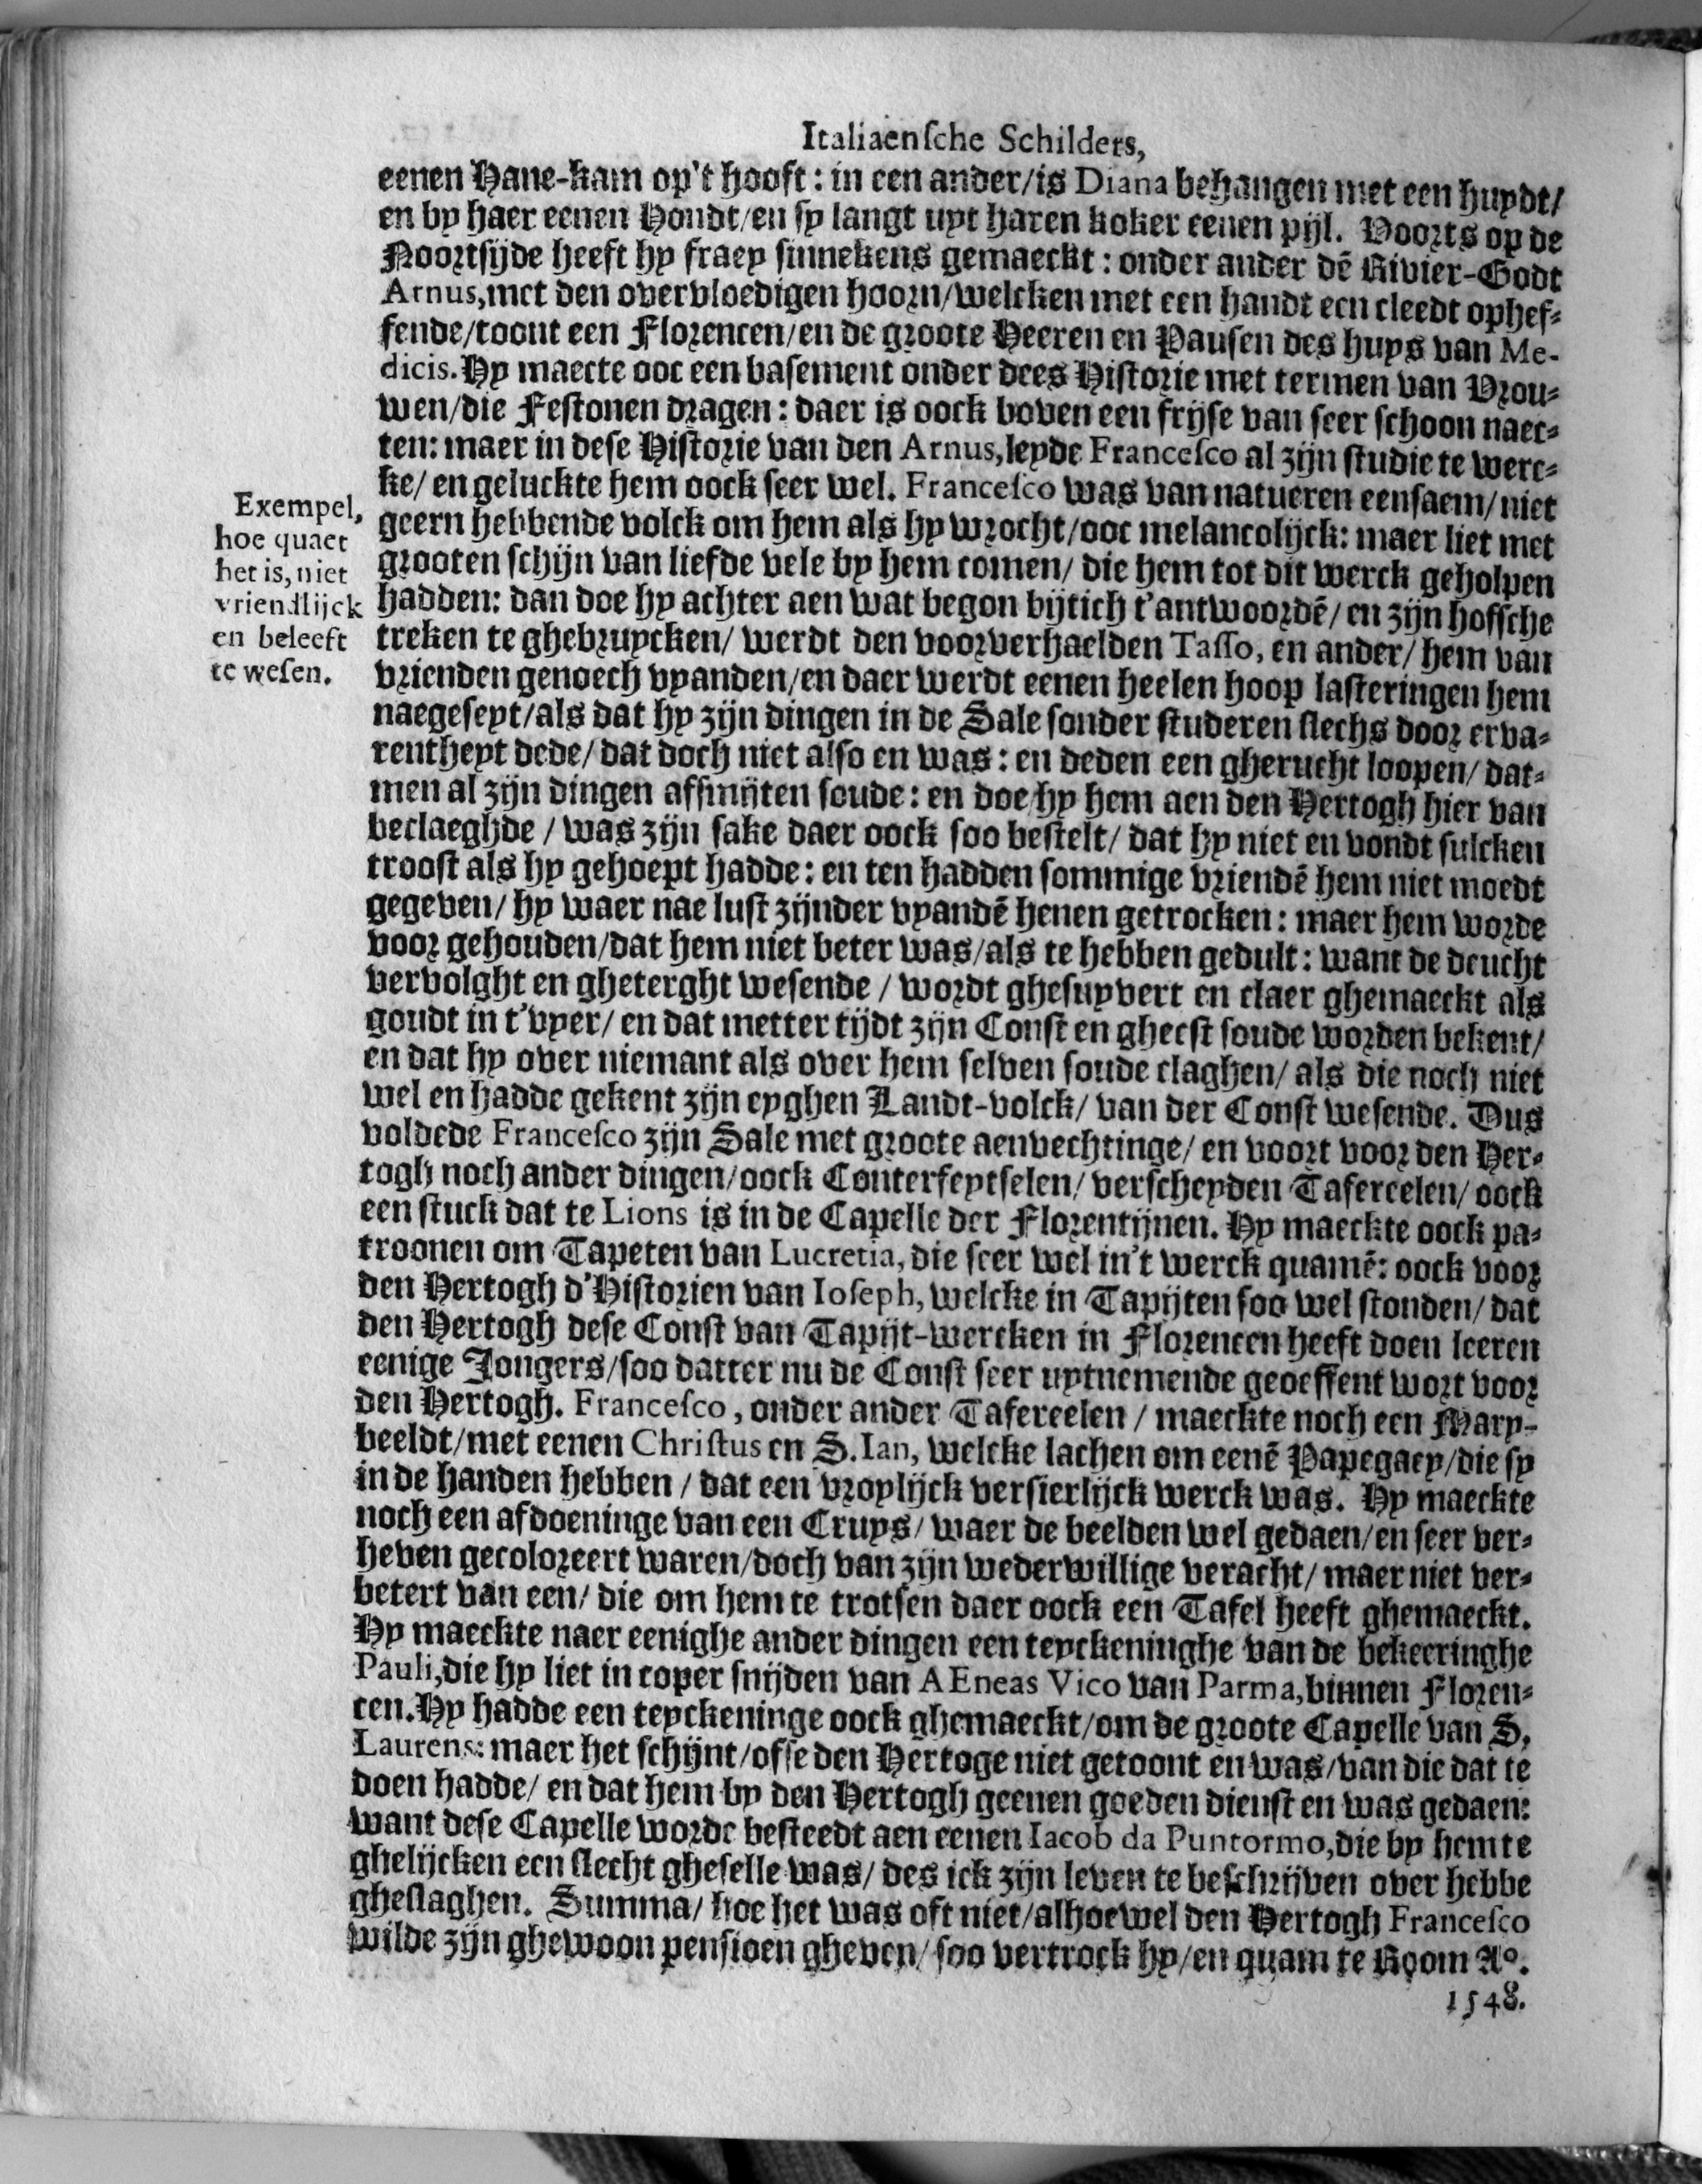 Italiaensche Schilders,
eenen Hane-kam op't hooft: in een ander/is Diana behangen met een huydt/
en by haer eenen Hondt/en sy langt uyt haren koker eenen pijl. Voorts op de
Noortsijde heeft hy fraey sinnekens gemaeckt: onder ander dē Rivier-Godt
Arnus,met den overvloedigen hoorn/welcken met een handt een cleedt ophef-
fende/toont een Florencen/en de groote Heeren en Pausen des huys van Me-
dicis.Hy maecte ooc een basement onder dees Historie met termen van Vrou-
wen/die Festonen dragen: daer is oock boven een frijse van seer schoon naec-
ten: maer in dese Historie van den Arnus,leyde Francesco al zijn studie te werc-
ke/ en geluckte hem oock seer wel. Francesco was van natueren eensaem/niet
geern hebbende volck om hem als hy wrocht/ooc melancolijck: maer liet met
grooten schijn van liefde vele by hem comen/ die hem tot dit werck geholpen
hadden: dan doe hy achter aen wat begon bijtich t'antwoordē/ en zijn hofsche
treken te ghebruycken/ werdt den voorverhaelden Tasso, en ander/ hem van
vrienden genoech vyanden/en daer werdt eenen heelen hoop lasteringen hem
naegeseyt/als dat hy zijn dingen in de Sale sonder studeren slechs door erva-
rentheyt dede/ dat doch niet also en was: en deden een gherucht loopen/ dat-
men al zijn dingen afsmijten soude: en doe hy hem aen den Hertogh hier van
beclaeghde / was zijn sake daer oock soo bestelt/ dat hy niet en vondt sulcken
troost als hy gehoept hadde: en ten hadden sommige vriendē hem niet moedt
gegeven/ hy waer nae lust zijnder vyandē henen getrocken: maer hem worde
voor gehouden/dat hem niet beter was/als te hebben gedult: want de deucht
vervolght en gheterght wesende / wordt ghesuyvert en claer ghemaeckt als
goudt in t'vyer/ en dat metter tijdt zijn Const en gheest soude worden bekent/
en dat hy over niemant als over hem selven soude claghen/ als die noch niet
wel en hadde gekent zijn eyghen Landt-volck/ van der Const wesende. Dus
voldede Francesco zijn Sale met groote aenvechtinge/ en voort voor den Her-
togh noch ander dingen/oock Conterfeytselen/ verscheyden Tafereelen/ oock
een stuck dat te Lions is in de Capelle der Florentijnen. Hy maeckte oock pa-
troonen om Tapeten van Lucretia, die seer wel in't werck quamē: oock voor
den Hertogh d'Historien van Ioseph, welcke in Tapijten soo wel stonden/ dat
den Hertogh dese Const van Tapijt-wercken in Florencen heeft doen leeren
eenige Jongers/soo datter nu de Const seer uytnemende geoeffent wort voor
den Hertogh. Francesco, onder ander Tafereelen / maeckte noch een Mary-
beeldt/met eenen Christus en S. Ian, welcke lachen om eenē Papegaey/die sy
in de handen hebben / dat een vroylijck versierlijck werck was. Hy maeckte
noch een afdoeninge van een Cruys/ waer de beelden wel gedaen/en seer ver-
heven gecoloreert waren/doch van zijn wederwillige veracht/ maer niet ver-
betert van een/ die om hem te trotsen daer oock een Tafel heeft ghemaeckt.
Hy maeckte naer eenighe ander dingen een teyckeninghe van de bekeeringhe
Pauli,die hy liet in coper snijden van AEneas Vico van Parma,binnen Floren-
cen.Hy hadde een teyckeninge oock ghemaeckt/om de groote Capelle van S.
Laurens: maer het schijnt/ofse den Hertoge niet getoont en was/van die dat te
doen hadde/ en dat hem by den Hertogh geenen goeden dienst en was gedaen:
want dese Capelle worde besteedt aen eenen Iacob da Puntormo,die by hem te
ghelijcken een slecht gheselle was/ des ick zijn leven te beschrijven over hebbe
gheslaghen. Summa/ hoe het was oft niet/alhoewel den Hertogh Francesco
wilde zijn ghewoon pensioen gheven/ soo vertrock hy/en quam te Room Aº.
1548.
Exempel,
hoe quaet
het is, niet
vriendlijck
en beleeft
te wesen.